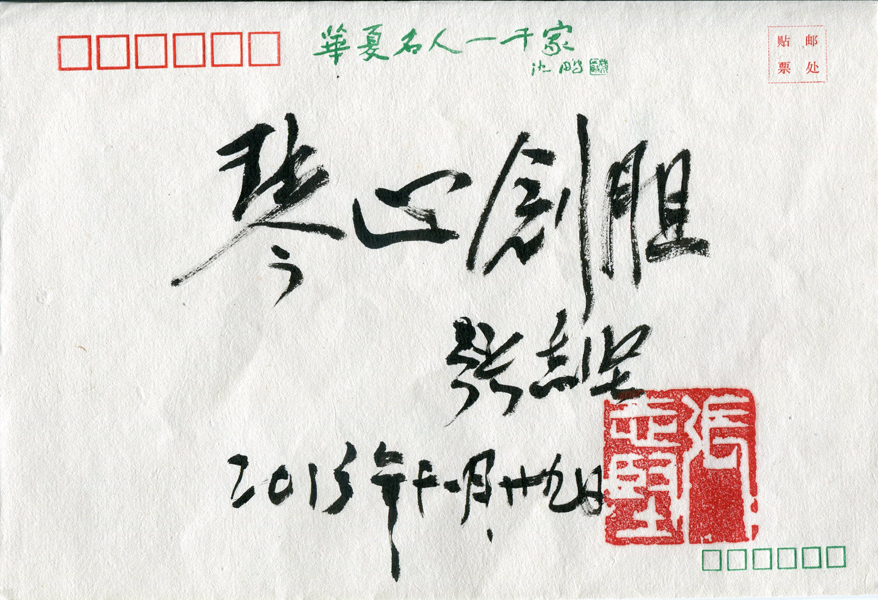 華夏名人一千家
沈鹏
贴 邮
票 处
琴心剑胆
张志坚
2015年十一月廿九日
張志堅